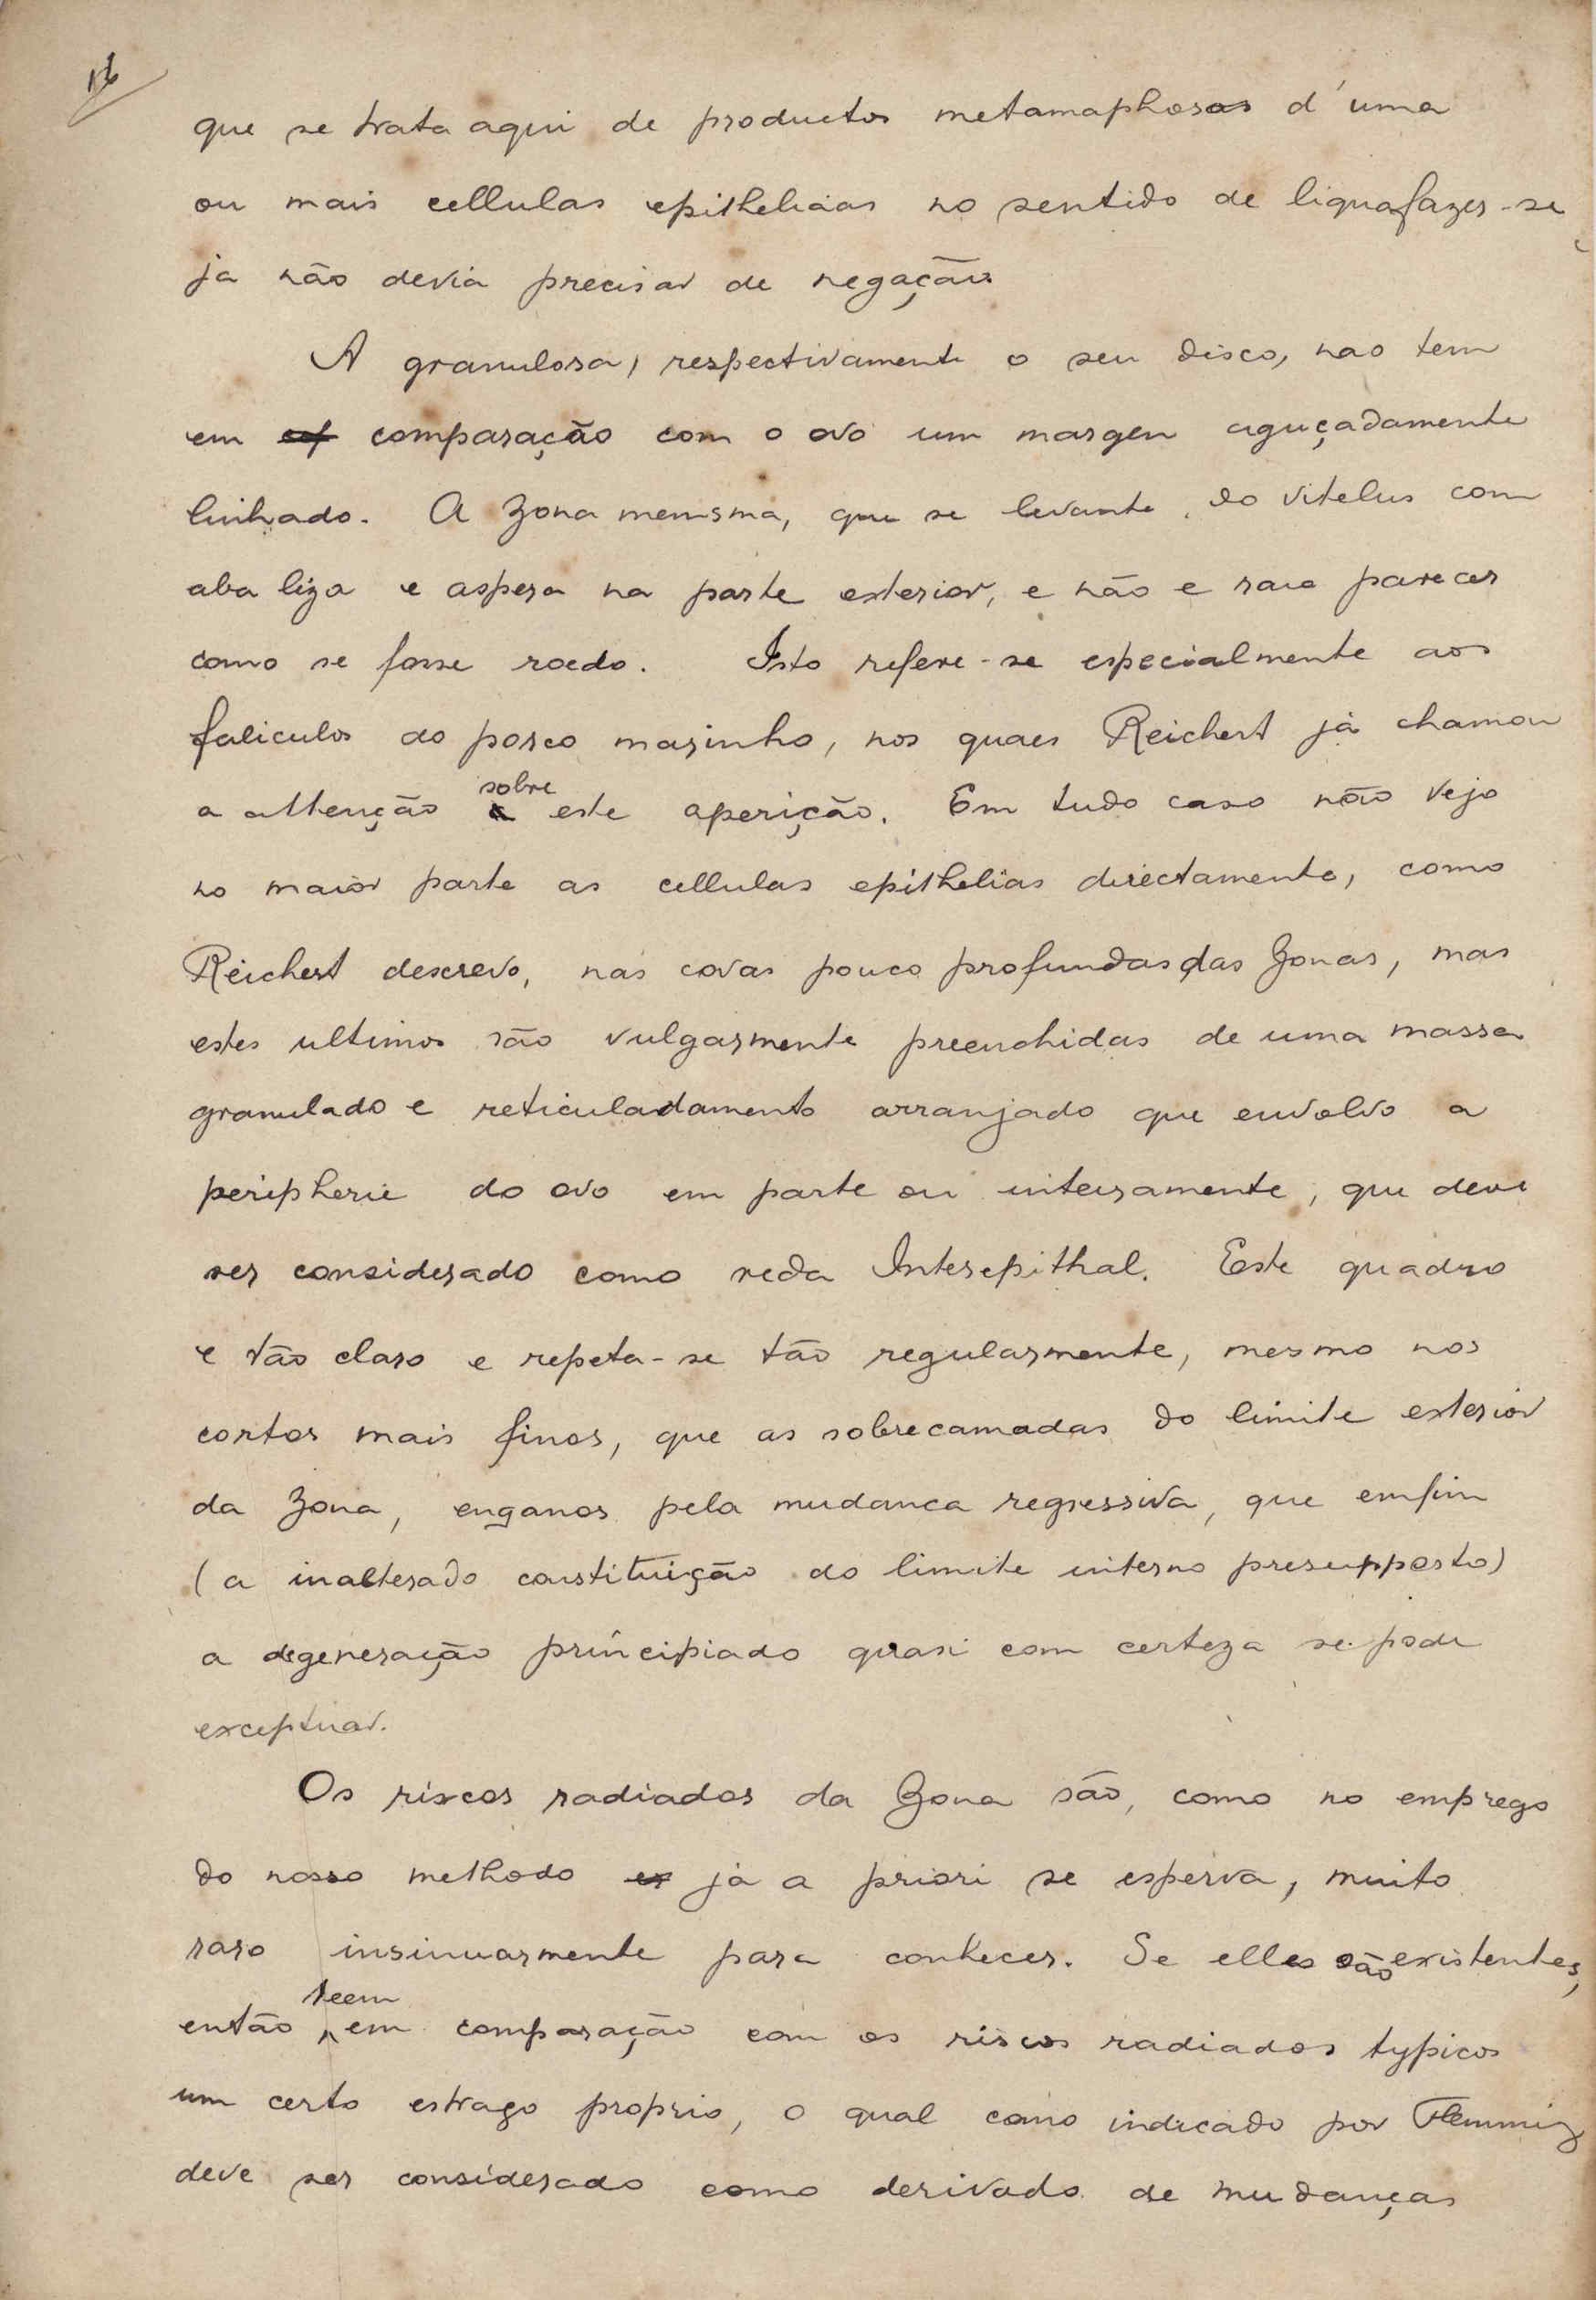 16
que se trata aqui de productos metamaphosas d'uma
ou mais cellulas epitheliaas no sentido de liquafazer-se
ja não devia precisar de negação
A granulosa, respectivamente o seu disco, nao tem
em comparação com o ovo um margen aguçadamente
linhado. A Zona memsma, que se levante do vitelus com
aba liza e aspera na parte exterior, e não e raro parecer
como se fosse roedo. Isto refere-se especialmente aos
faliculos do porco marinho, nos quaes Reichert já chamou
a attenção sobre este aperição. Em tudo caso não vejo
no maior parte as cellulas epithelias directamente, como
Reichert descrevo, nas covas pouco profundas das Zonas, mas
estes ultimos são vulgarmente preenchidas de uma massa
granulado e reticuladamento arranjado que envolvo a
peripherie do ovo em parte ou inteiramente, que deve
ser considerado como reda Interepithal. Este quadro
e tão claro e repeta-se tão regularmente, mesmo nos
cortos mais finos, que as sobrecamadas do limite exterior
da Zona, enganos pela mudanca regressiva, que emfim
(a inalterado constituição do limite interno presupposto)
a degeneração principiado quasi com certeza se pode
exceptuar.
Os riscos radiados da Zona são, como no emprego
do nosso methodo já a priori se esperva, muito
raro insinuarmente para conhecer. Se elles são existentes,
então teem em comparação com os riscos radiados typicos
um certo estrago proprio, o qual como indicado por Flemming
deve ser considerado como derivado de mudanças